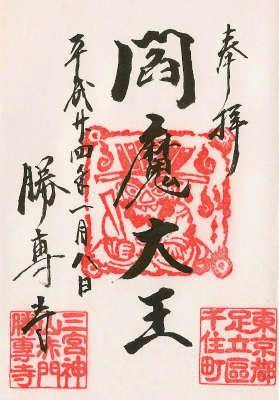 奉拝
閻魔大王
平成廿四年一月八日
勝専寺
東京都
足立區
千住町
三宮神
山赤門
勝專寺